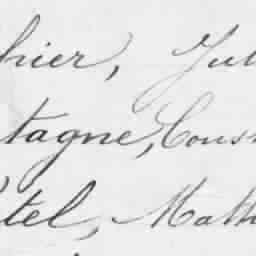 hier, Jul
tagne, Cons
tel, Math